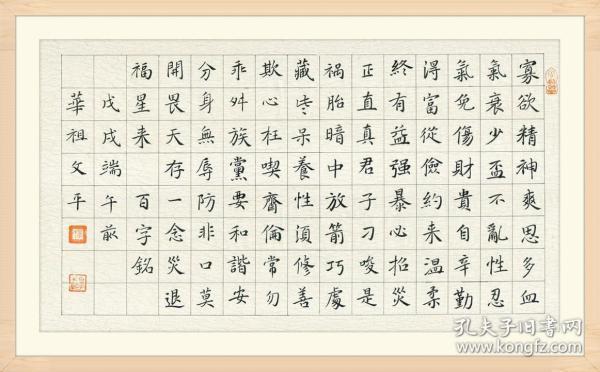 寡欲精神爽思多血
氣衰少盃不亂性忍
氣免傷財貴自辛勤
得富從儉約来温柔
終有益强暴必招災
正直真君子刁唆是
祸胎暗中放箭巧處
藏些呆養性須修善
欺心枉喫齋倫常勿
乖舛族黨要和諧安
分身無辱防非口莫
開畏天存一念災退
福星来 百字銘
戊戌端午前
華祖文平
孔夫子旧书网
www.kongfz.com